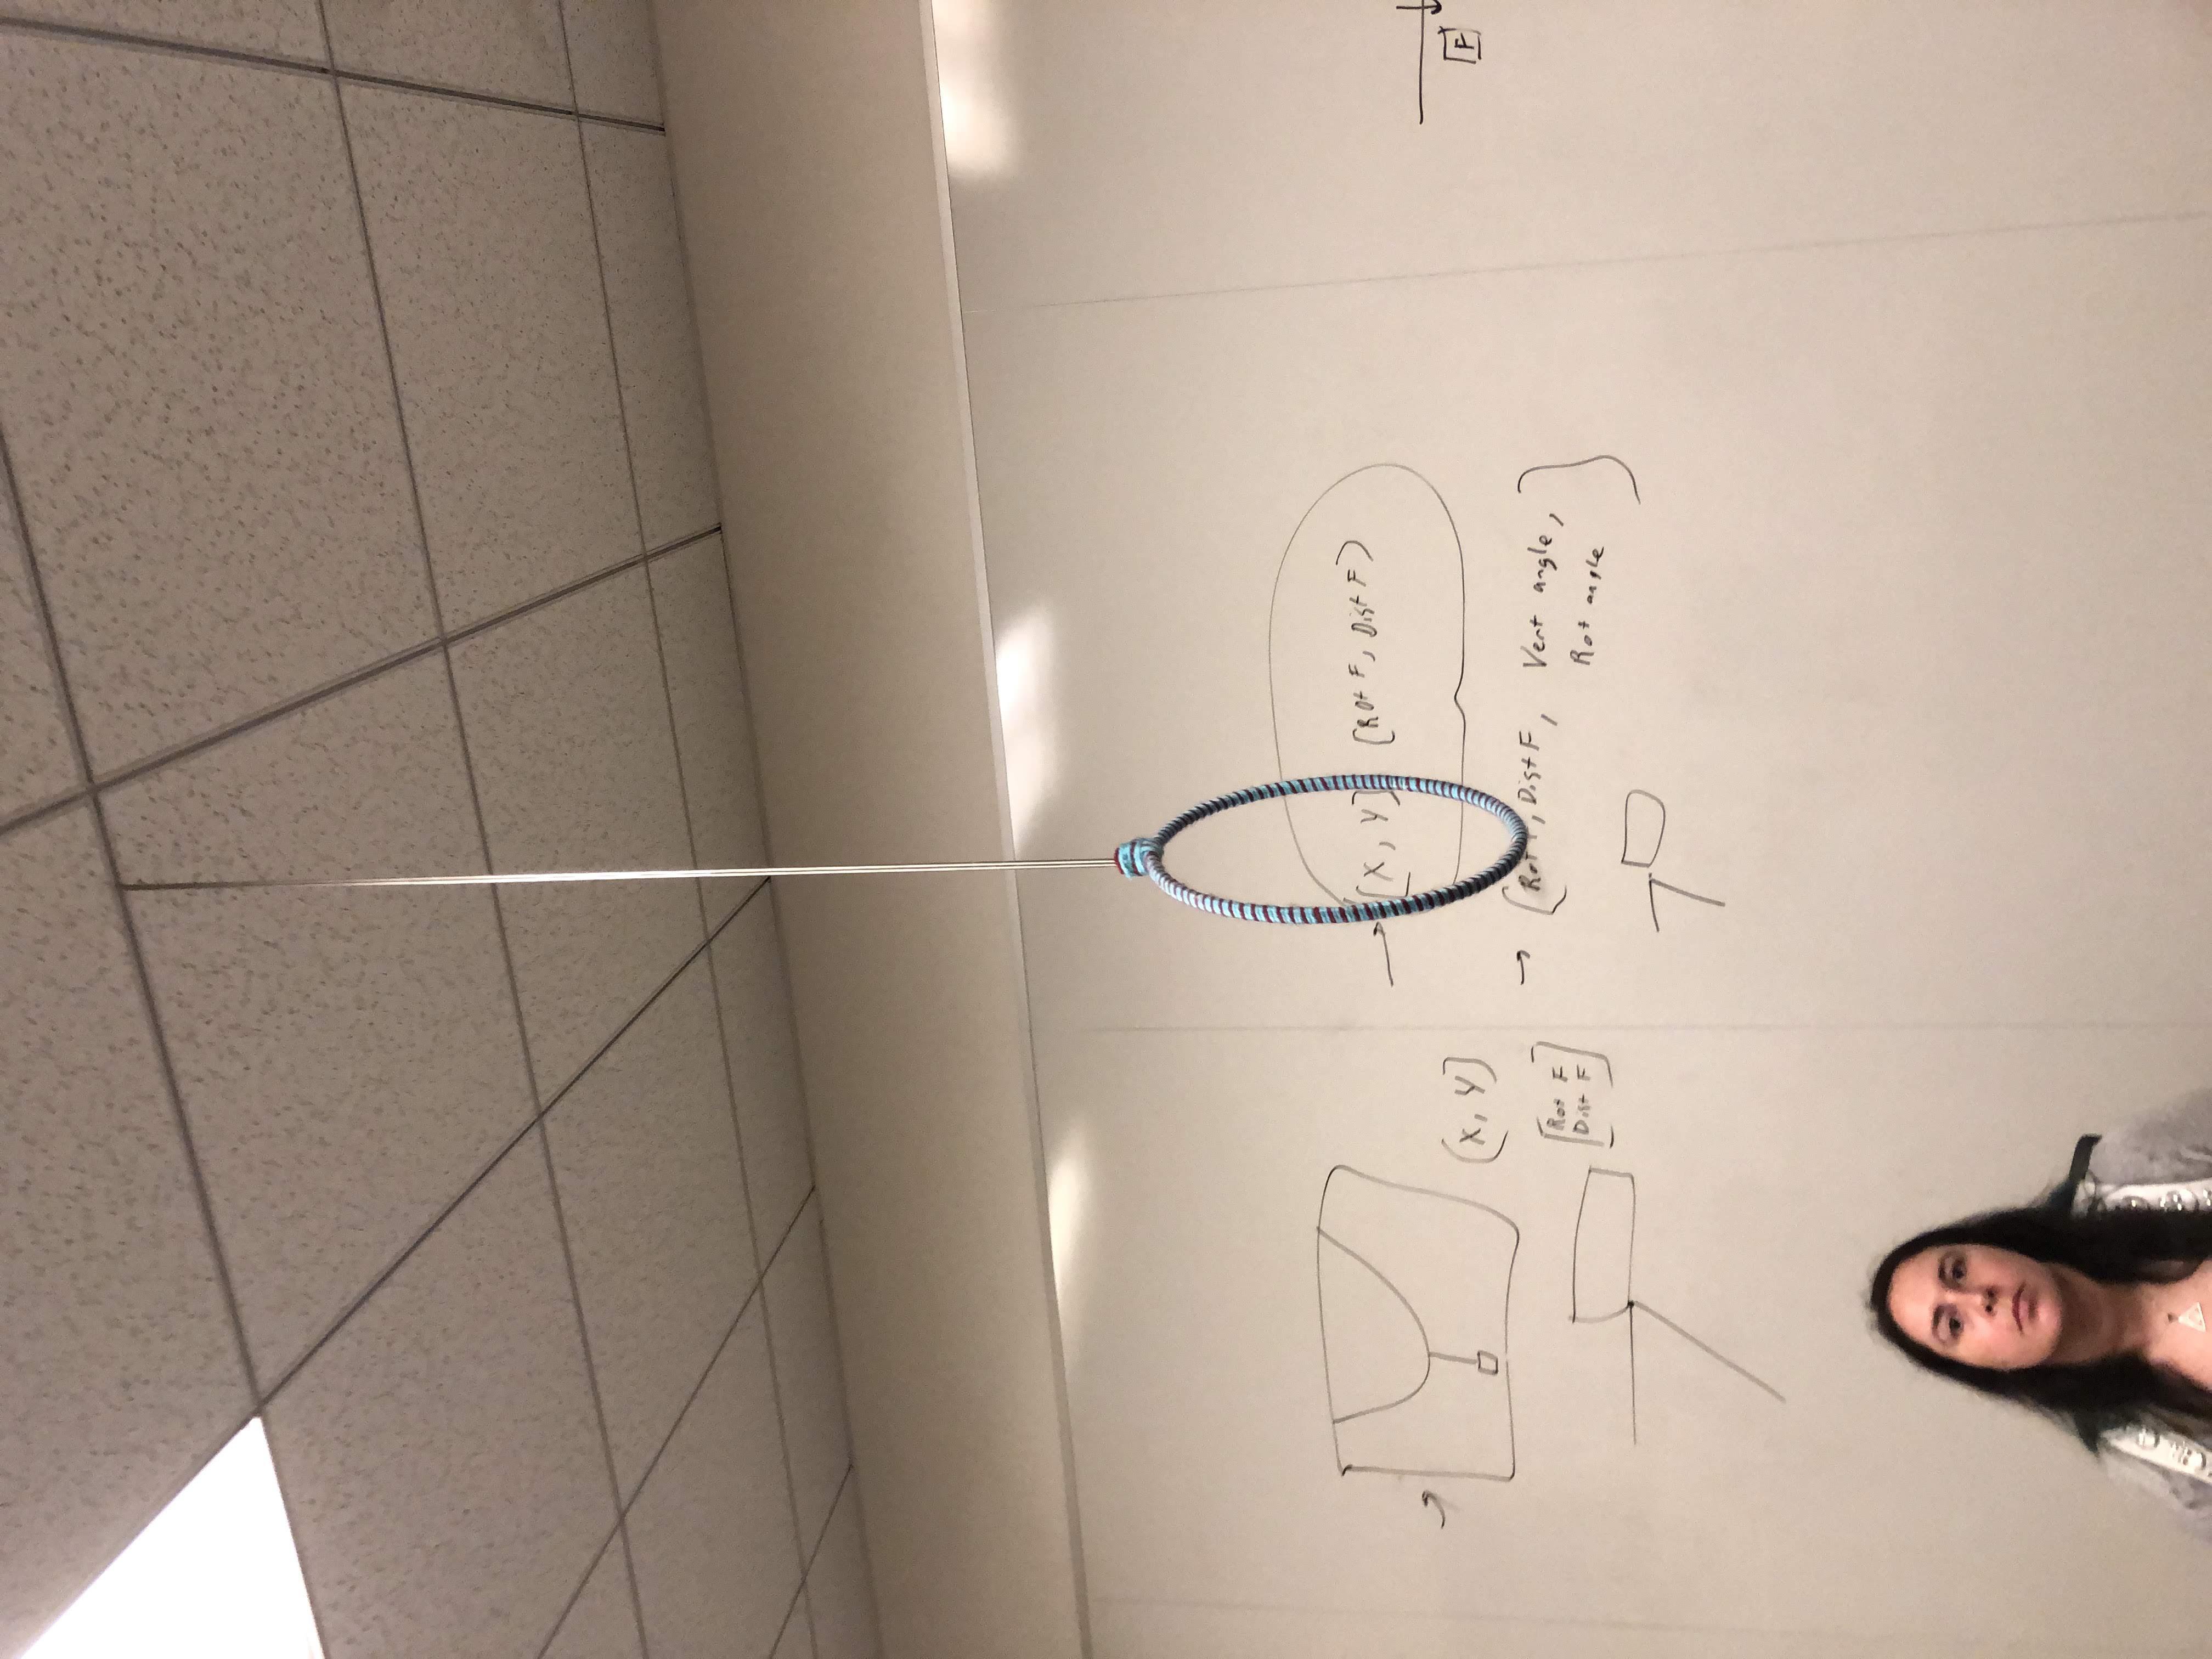 (X, Y)
[Rot F
Dist F]
→ [X, Y] (Rot F, Dist F)
→ [Rot F, Dist F, Vert angle,
Rot angle]
F